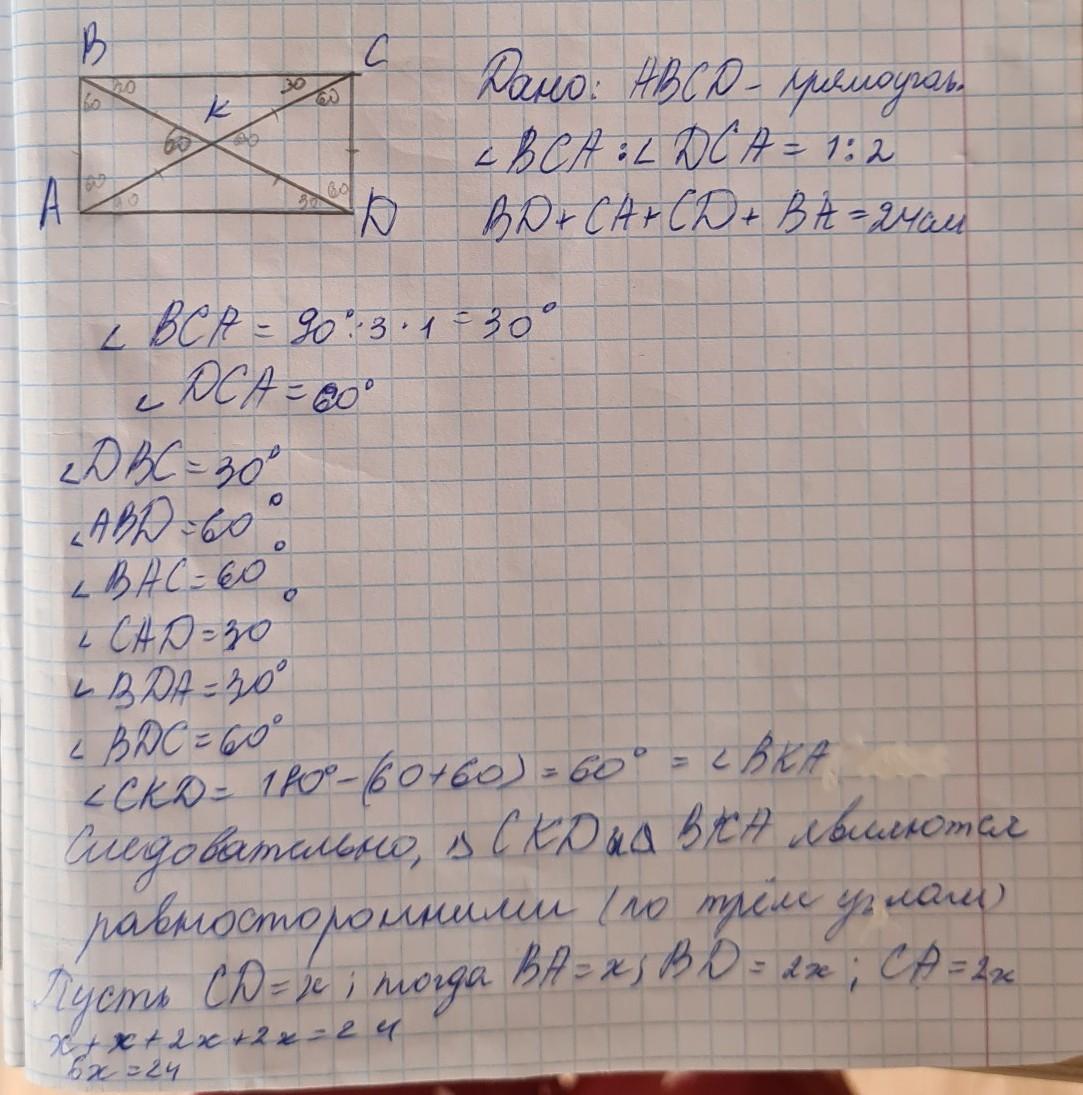 B
C
30
30
60
60
K
60
60
60
60
30
30
A
D
Дано: ABCD - прямоуголь.
∠BCA : ∠DCA = 1:2
BD + CA + CD + BA = 24см
∠ BCA = 90° : 3 · 1 = 30°
∠ DCA = 60°
∠DBC = 30°
∠ABD = 60°
∠ BAC = 60°
∠ CAD = 30°
∠ BDA = 30°
∠ BDC = 60°
∠CKD = 180° - (60+60) = 60° = ∠BKA
Следовательно, △ CKD и △ BKA являются
равносторонними (по трём углам)
Пусть CD = x ; тогда BA = x ; BD = 2x ; CA = 2x
x + x + 2x + 2x = 24
6x = 24